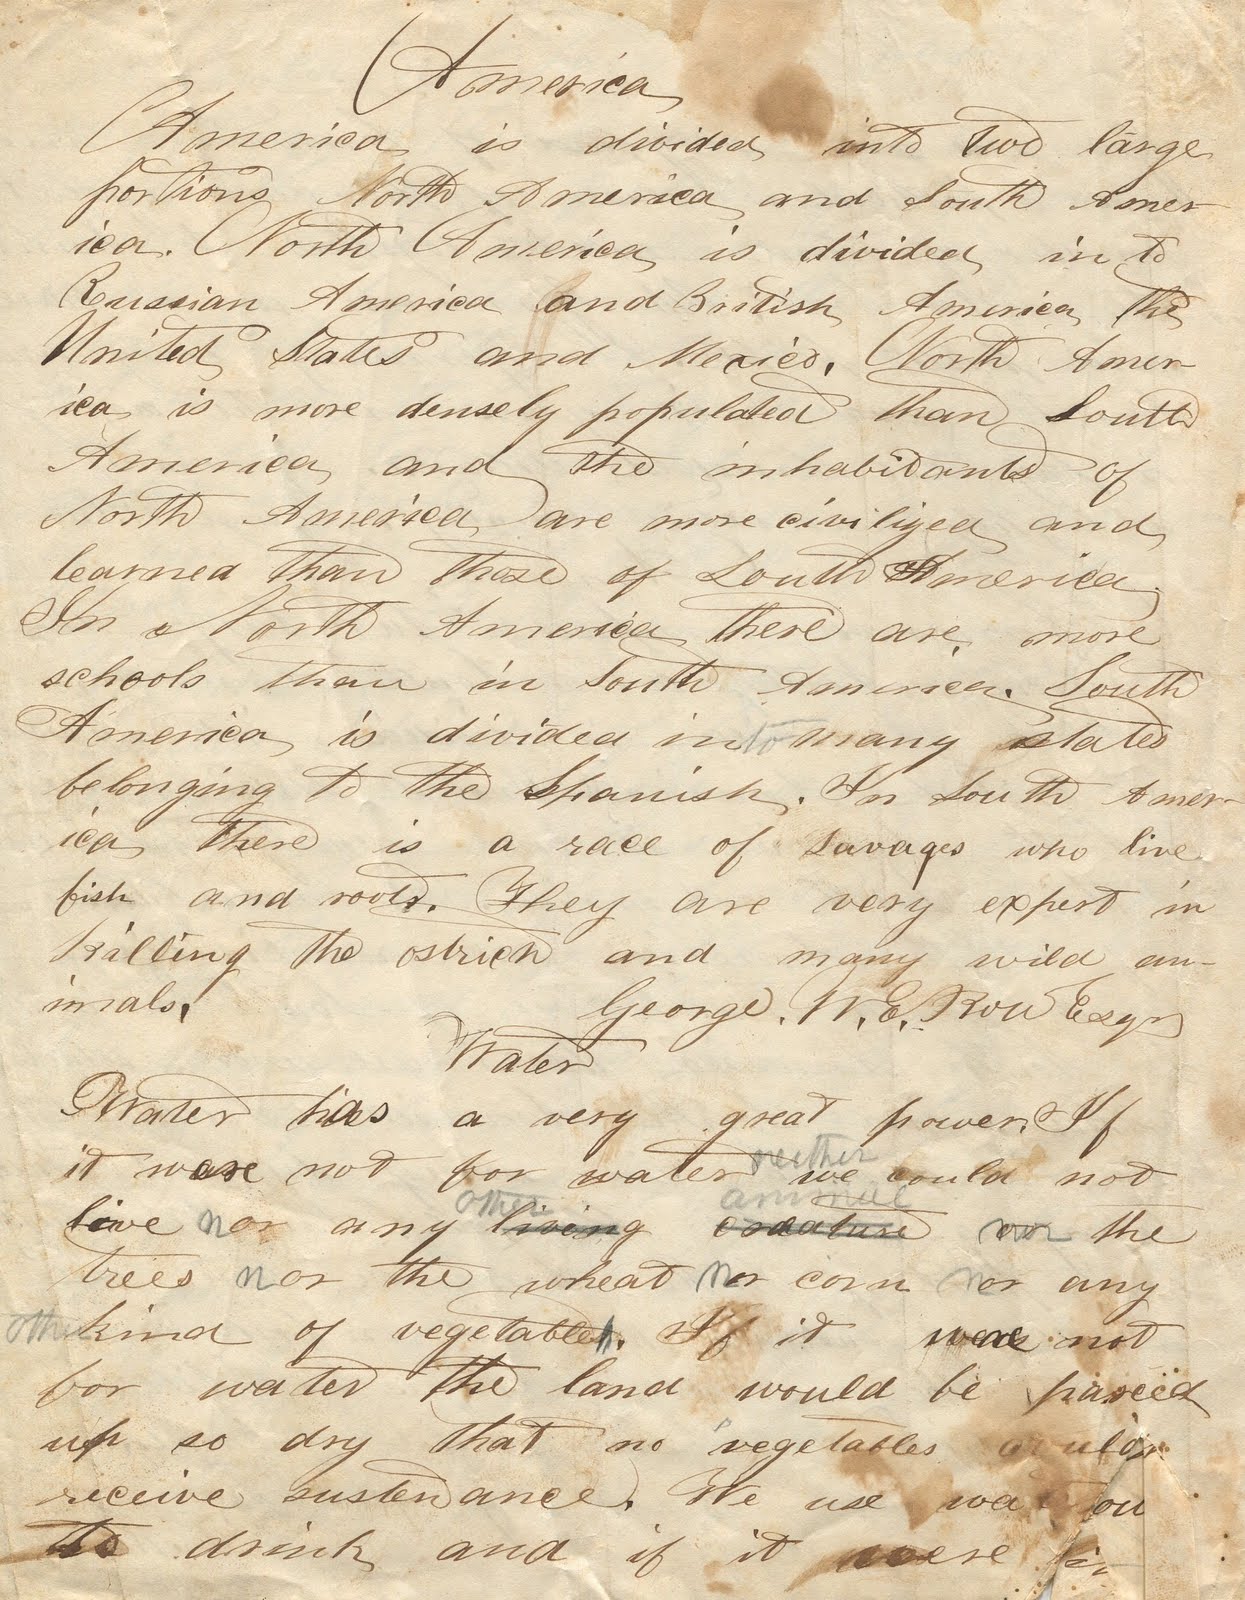 America
America is divided into two large
portions North America and South Amer-
ica. North America is divided in to
Russian America and British America the
United States and Mexico. North Amer-
ica is more densely populated than South
America and the inhabitants of
North America are more civilized and
learned than those of South America.
In North America there are more
schools than in South America. South
America is divided into many states
belonging to the Spanish. In South Amer-
ica there is a race of savages who live
fish and roots. They are very expert in
killing the ostrich and many wild an-
imals. George. W. E. Row Esqr
Water
Water has a very great power. If
neither
it were not for water we could not
other animal
live nor any living creature nor the
trees nor the wheat nor corn nor any
other kind of vegetable. If it were not
for water the land would be parced
up so dry that no vegetables could
receive sustenance. We use
to drink and if it were